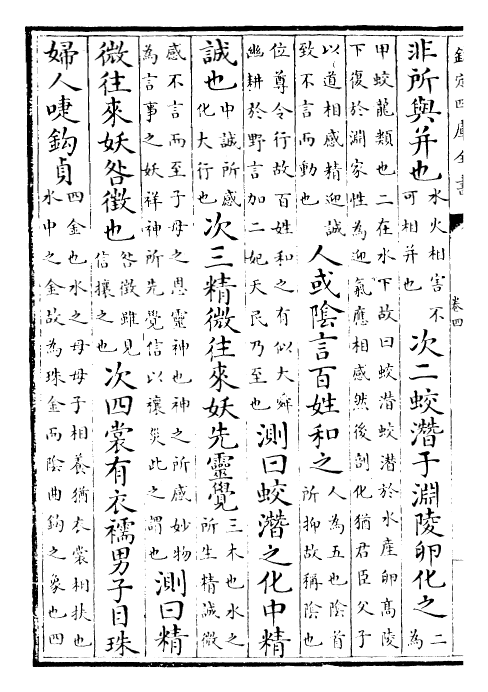 欽定四庫全書
卷四
非所與并也
水火相害不
可相并也
次二蛟潛于淵陵卵化之
二
為
甲蛟龍類也二在水下故曰蛟潛蛟潛於水產卵高陵
下復於淵家性為迎氣應相感然後剖化猶君臣父子
以道相感精迎誠
致不言而動也
人或陰言百姓和之
人為五也陰首
所抑故稱陰也
位尊令行故百姓和之有似大舜
幽耕於野言加二妃天民乃至也
測曰蛟潛之化中精
誠也
中誠所感
化大行也
次三精微往來妖先靈覺
三木也水之
所生精誠微
感不言而至子母之恩靈神也神之所感妙物
為言事之妖祥神所先覺信以禳災此之謂也
測曰精
微往來妖咎徵也
咎徵雖見
信攘之也
次四裳有衣襦男子目珠
婦人啑鈎貞
四金也水之母母子相養猶衣裳相扶也
水中之金故為珠金而陰曲鈎之象也四